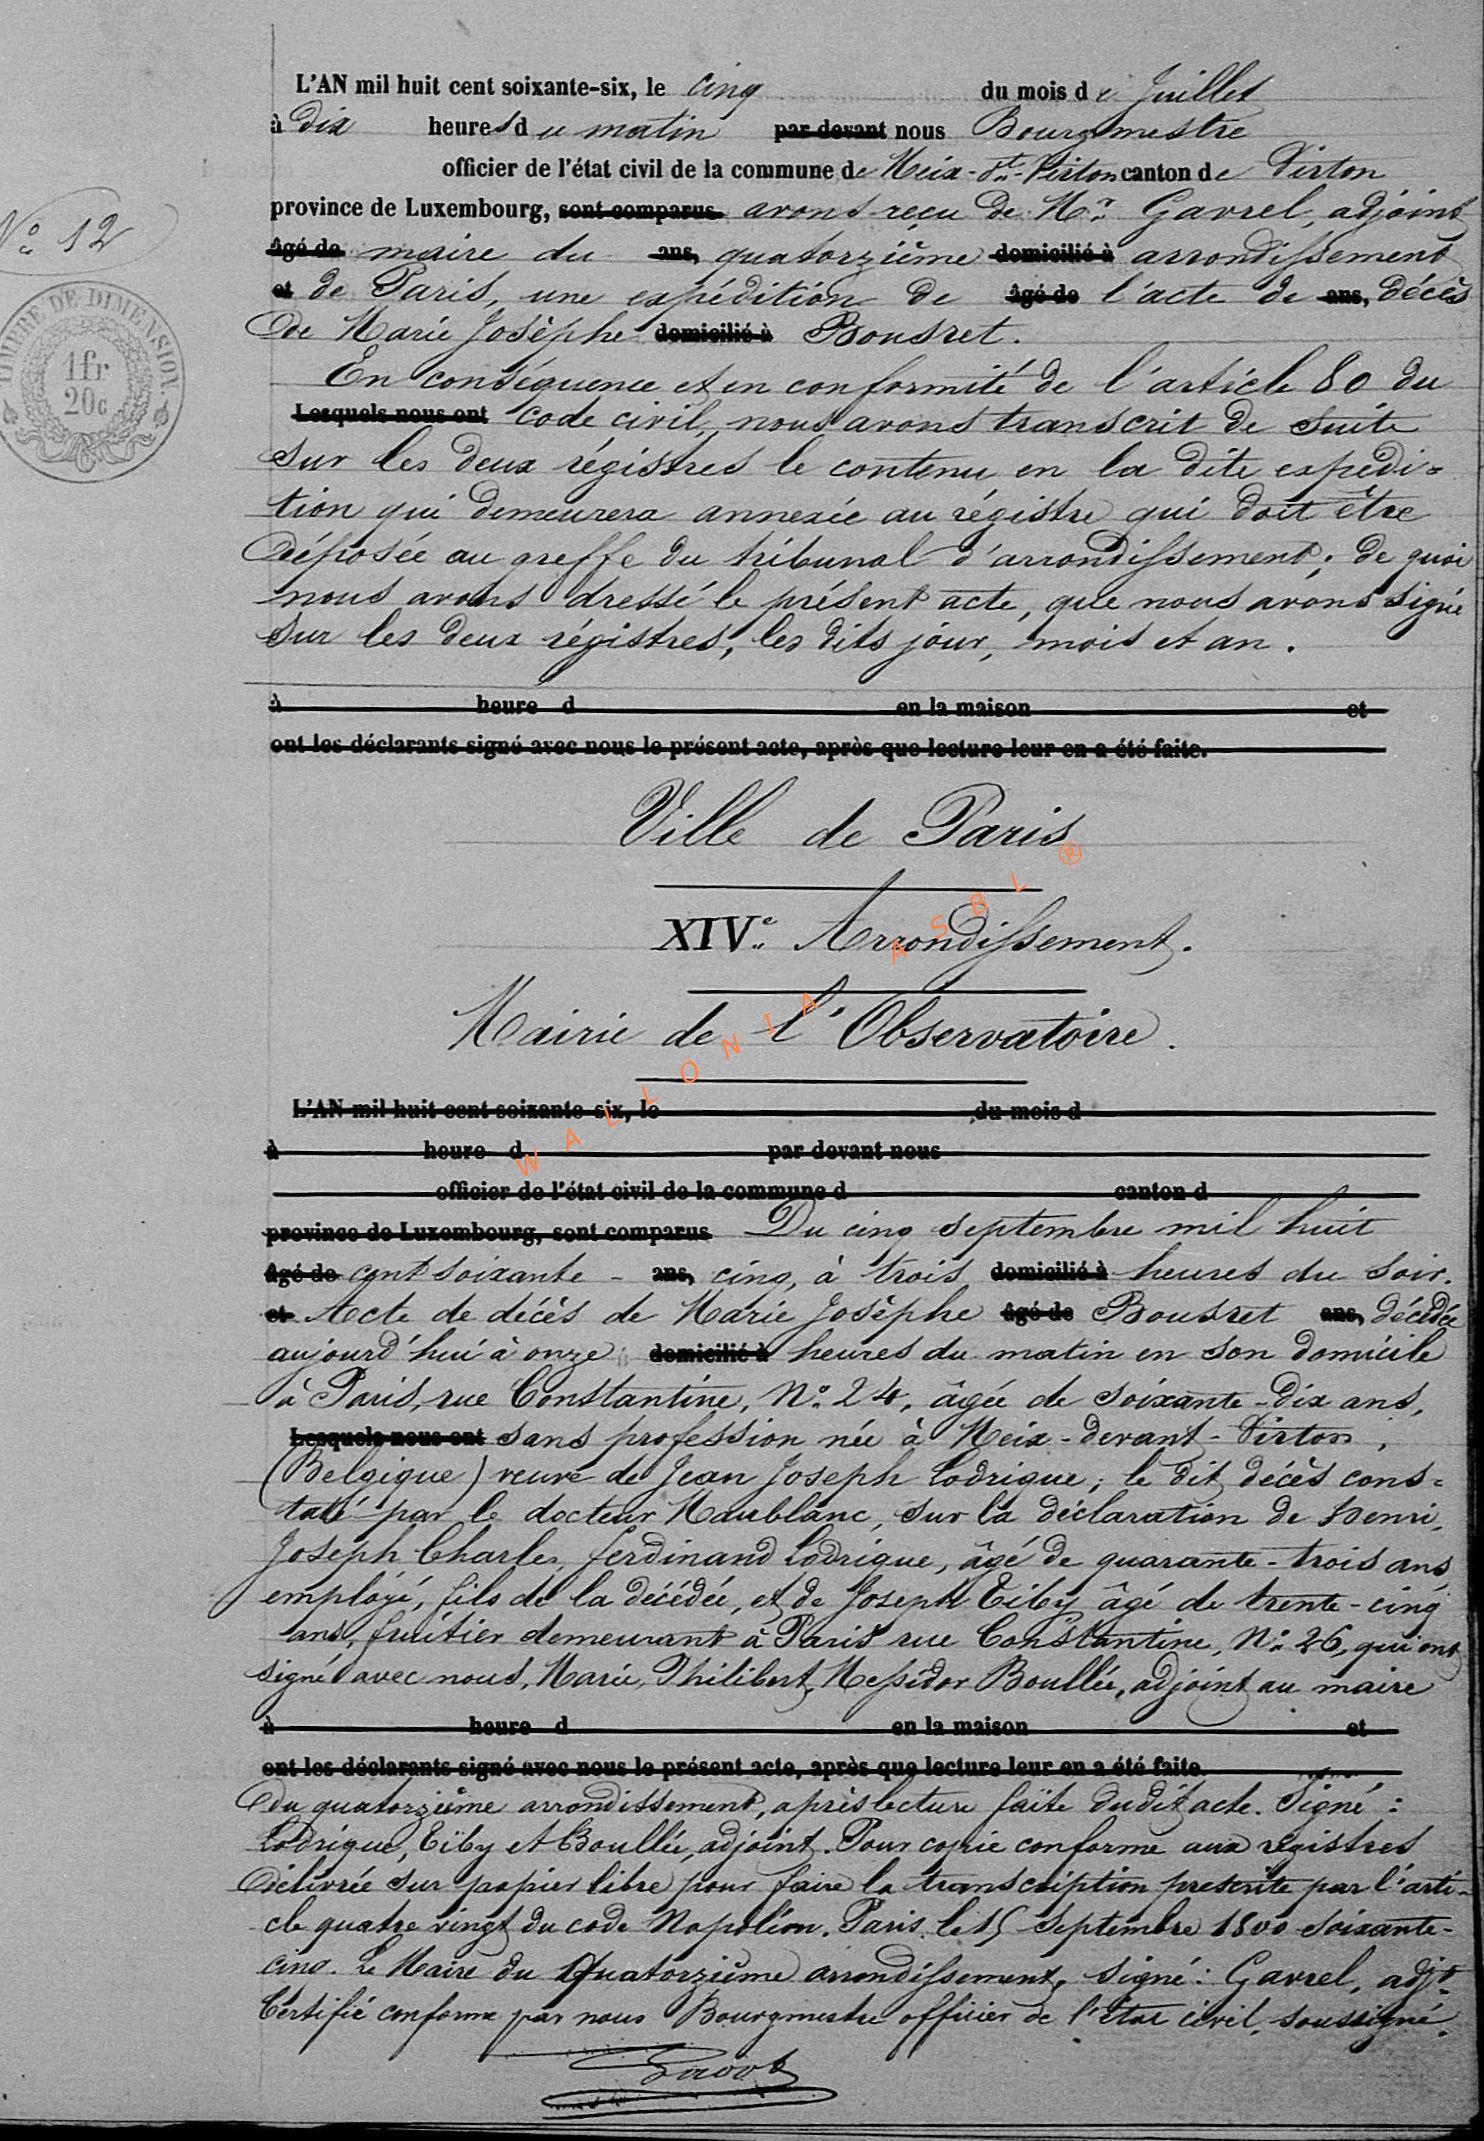 L'AN mil huit cent soixante-six, le cinq du mois de Juillet
à dix heures du matin par devant nous Bourgmestre
officier de l'état civil de la commune de Meix-dt-Virton canton de Virton
N° 12
province de Luxembourg, sont comparus avons reçu de Mr Gavrel, adjoint
âgé de maire du ans, quatorzième domicilié à arrondissement
et de Paris, une expédition de âgé de l'acte de ans, décès
de Marie Josèphe domicilié à Bousret.
TIMBRE DE DIMENSION.
1fr
20c
En conséquence et en conformité de l'article 80 du
Lesquels nous ont code civil, nous avons transcrit de suite
sur les deux régistres le contenu en la dite expédi=
tion qui demeurera annexée au régistre qui doit être
déposée au greffe du tribunal d'arrondissement; de quoi
nous avons dressé le présent acte, que nous avons signé
sur les deux régistres, les dits jour, mois et an.
à heure d en la maison et
ont les déclarants signé avec nous le présent acte, après que lecture leur en a été faite.
Ville de Paris
XIVe Arrondissement.
Mairie de l'Observatoire.
WALLONIA ASBL ®
L'AN mil huit cent soixante-six, le du mois d
à heure d par devant nous
officier de l'état civil de la commune d canton d
province de Luxembourg, sont comparus Du cinq septembre mil huit
âgé de cent soixante - ans, cinq, à trois domicilié à heures du soir.
et Acte de décès de Marie Josèphe âgé de Bousret ans, décédée
aujourd'hui à onze domicilié à heures du matin en son domicile
à Paris, rue Constantine, N° 24, âgée de soixante-dix ans,
Lesquels nous ont sans profession née à Meix-devant-Virton,
(Belgique) veuve de Jean Joseph Lodrigue; le dit décès cons=
taté par le docteur Maublanc, sur la déclaration de Henri,
Joseph Charles, ferdinand Lodrigue, âgé de quarante-trois ans
employé, fils de la décédée, et de Joseph Eiby âgé de trente-cinq
ans, fruitier demeurant à Paris rue Constantine, N° 26, qui ont
signé avec nous, Marie, Philibert, Messidor Boullée, adjoint au maire
à heure d en la maison et
ont les déclarants signé avec nous le présent acte, après que lecture leur en a été faite.
du quatorzième arrondissement, après lecture faite dudit acte. Signé:
Lodrigue, Eïby et Boullée, adjoint. Pour copie conforme aux registres
délivrée sur papier libre pour faire la transcription prescrite par l'arti-
cle quatre vingt du code Napoléon. Paris le 15 Septembre 1800 soixante-
cinq. Le Maire du Quatorzième arrondissement, signé: Gavrel, adjt.
Certifié conforme par nous Bourgmestre officier de l'état civil, soussigné.